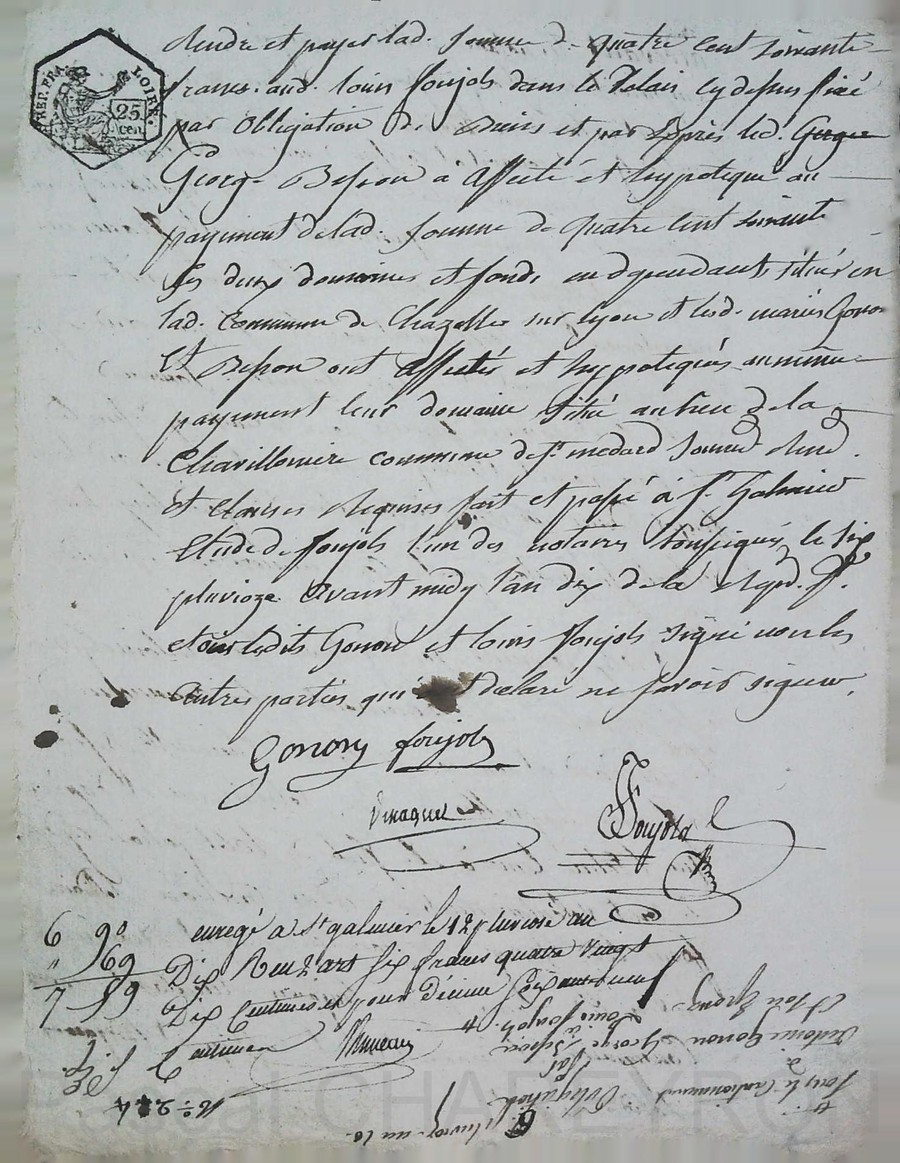 REP. FRA. LOIRE.
25 cen.
Rendre et payer lad. somme de quatre cent soixante
francs. aud. louis foujols dans le delais cy dessus fixé
par obligation de et par Exprès led.
George Besson a affecté et hypotequé au
payement de lad. somme de quatre cent soixante
ses deux domaines et fonds en dependants situés en
lad. Commune de Chazelles sur lyon et lesd. mariés Gonon
Et Besson ont affectés et hypotequés au même
payement leur domaine situé au lieu de la
commune de st. medard
et clauses Requises fait et passé à st. Galmier
Etude de foujols l'un des notaires soussignés, le six
pluvioze avant midy l'an dix de la Repu. f.
et ont lesdits Gonon et louis foujols signé non les
autres parties qui déclaré ne savoir signer.
Gonon foujols
foujols
6 90
" 69
7 59
enregé a st galmier le 12 pluviose an
Dix Reçu six francs quatre vingt
Dix Centimes et pour Décime soixante neuf
Centimes
6 pluvioz. an 10.
Obligation
Par
George Besson
à
Louis foujols
Sous le Cautionnement
à
Antoine Gonon